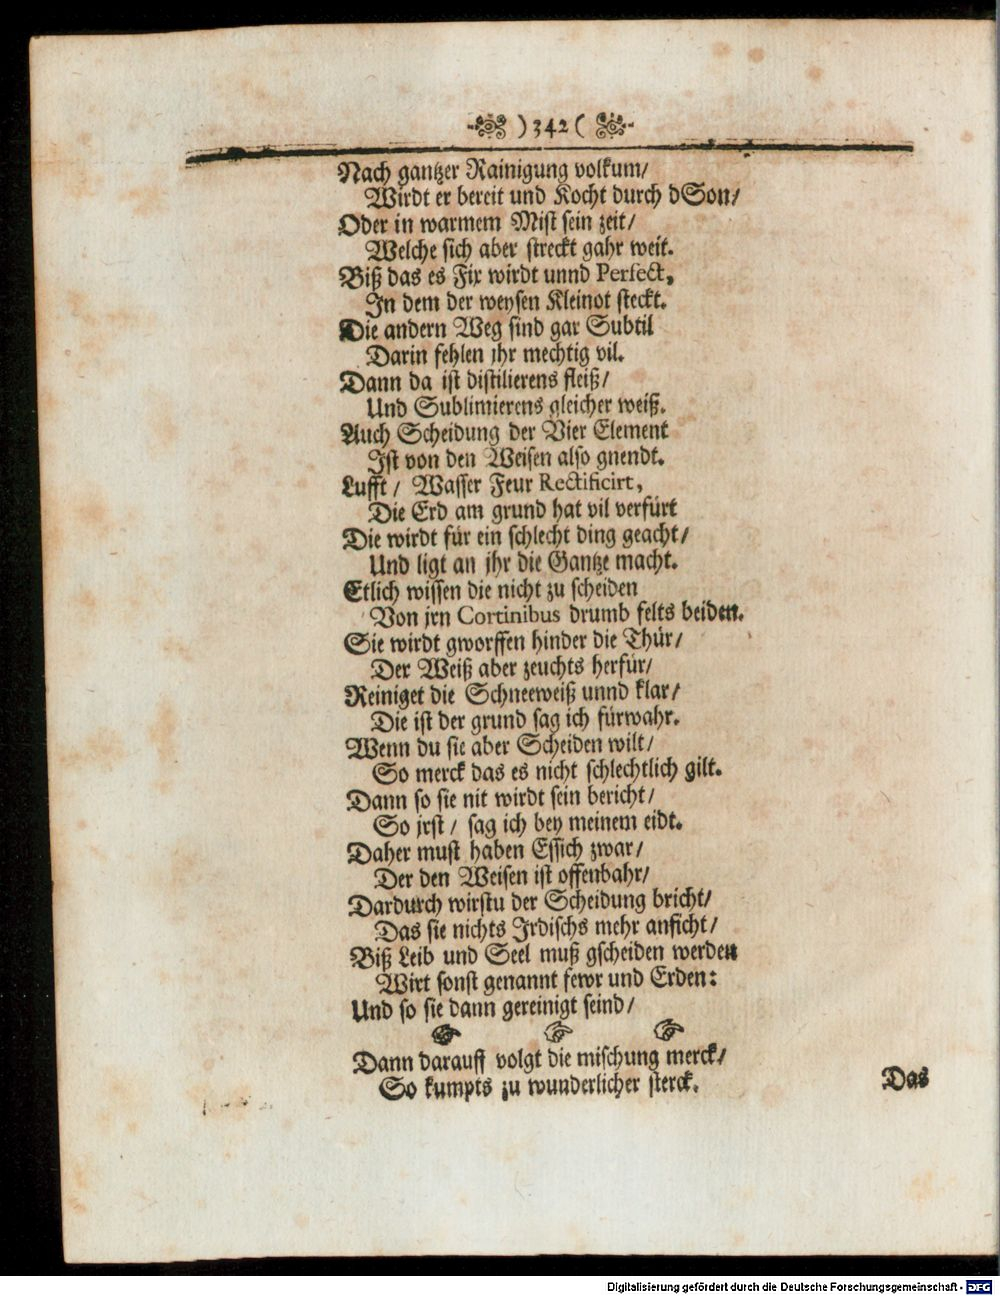 )342(
Nach gantzer Rainigung volkum/
Wirdt er bereit und Kocht durch dSon/
Oder in warmem Mist sein zeit/
Welche sich aber streckt gahr weit.
Biß das es Fix wirdt unnd Perfect,
In dem der weysen Kleinot steckt.
Die andern Weg sind gar Subtil
Darin fehlen jhr mechtig vil.
Dann da ist distilierens fleiß/
Und Sublimierens gleicher weiß.
Auch Scheidung der Vier Element
Ist von den Weisen also gnendt.
Lufft / Wasser Feur Rectificirt,
Die Erd am grund hat vil verfürt
Die wirdt für ein schlecht ding geacht/
Und ligt an jhr die Gantze macht.
Etlich wissen die nicht zu scheiden
Von jrn Cortinibus drumb felts beiden.
Sie wirdt gworffen hinder die Thür/
Der Weiß aber zeuchts herfür/
Reiniget die Schneeweiß unnd klar/
Die ist der grund sag ich fürwahr.
Wenn du sie aber Scheiden wilt/
So merck das es nicht schlechtlich gilt.
Dann so sie nit wirdt sein bericht/
So jrst / sag ich bey meinem eidt.
Daher must haben Essich zwar/
Der den Weisen ist offenbahr/
Dardurch wirstu der Scheidung bricht/
Das sie nichts Irdischs mehr anficht/
Biß Leib und Seel muß gscheiden werden
Wirt sonst genannt fewr und Erden:
Und so sie dann gereinigt seind/
☞ ☞ ☞
Dann darauff volgt die mischung merck/
So kumpts zu wunderlicher sterck.
Das
Digitalisierung gefördert durch die Deutsche Forschungsgemeinschaft - DFG